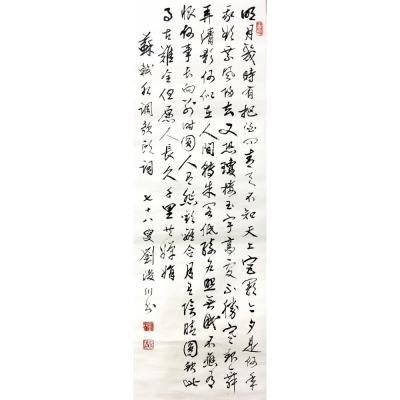 明月幾時有把酒問青天不知天上宮闕今夕是何年
我欲乘風歸去又恐瓊樓玉宇高處不勝寒起舞
弄清影何似在人間轉朱閣低綺戶照無眠不應有
恨何事長向別時圓人有悲歡離合月有陰晴圓缺此
事古難全但願人長久千里共嬋娟
蘇軾水調歌頭詞 七十八叟劉川書